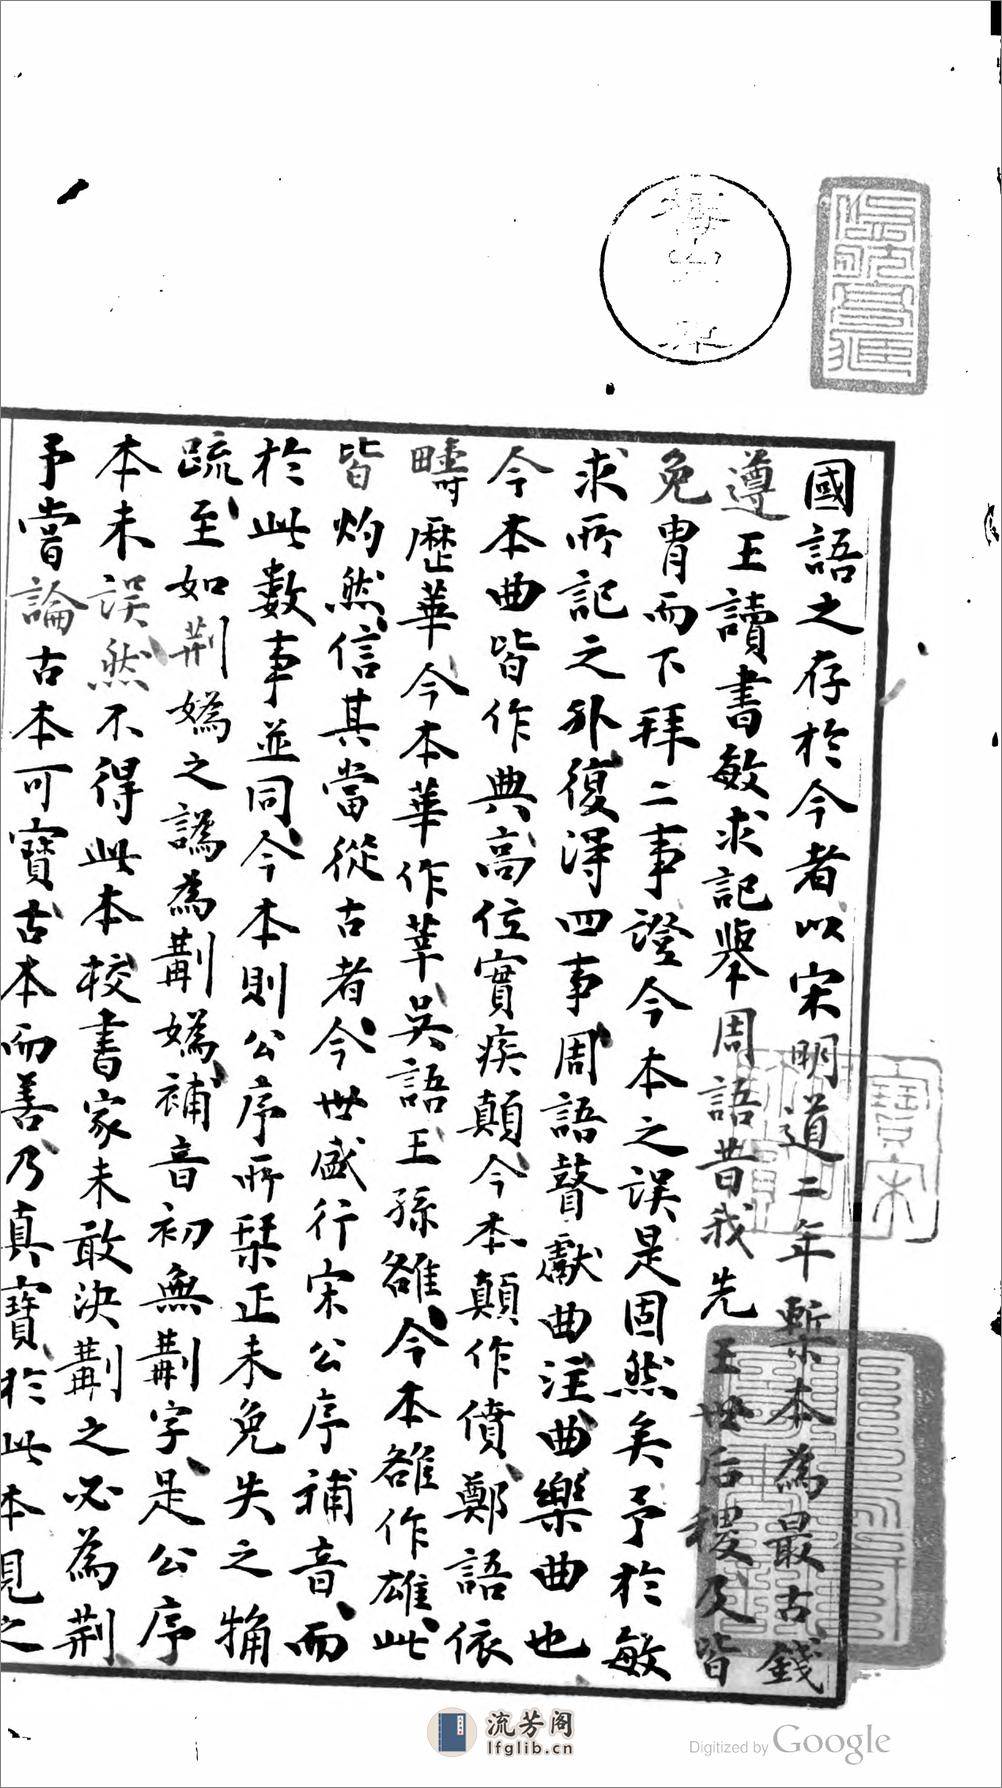 國語之存於今者以宋明道二年槧本為最古錢
遵王讀書敏求記舉周語昔我先王世后稷及皆
免胄而下拜二事證今本之誤是固然矣予於敏
求所記之外復得四事周語瞽獻曲注曲樂曲也
今本曲皆作典高位實疾顛今本顛作僨鄭語依
疇歷華今本華作莘吳語王孫雒今本雒作雄此
皆灼然信其當從古者今世盛行宋公序補音而
於此數事並同今本則公序所栞正未免失之觕
疏至如荆媯之譌為葪媯補音初無葪字是公序
本未誤然不得此本校書家未敢決葪之必為荆
予嘗論古本可寶古本而善乃真寶於此本見之
寶宋
流芳阁
lfglib.cn
Digitized by Google